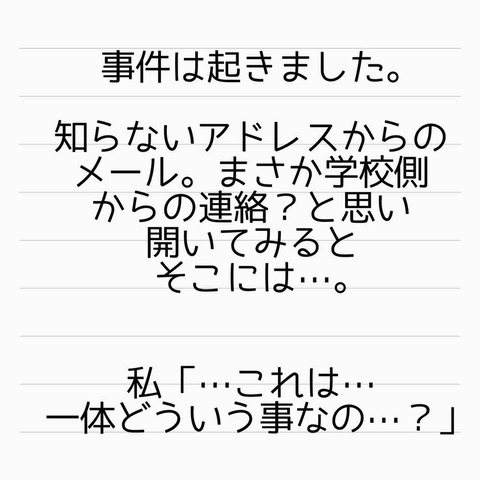 事件は起きました。
知らないアドレスからの
メール。まさか学校側
からの連絡？と思い
開いてみると
そこには…。
私「…これは…
一体どういう事なの…？」